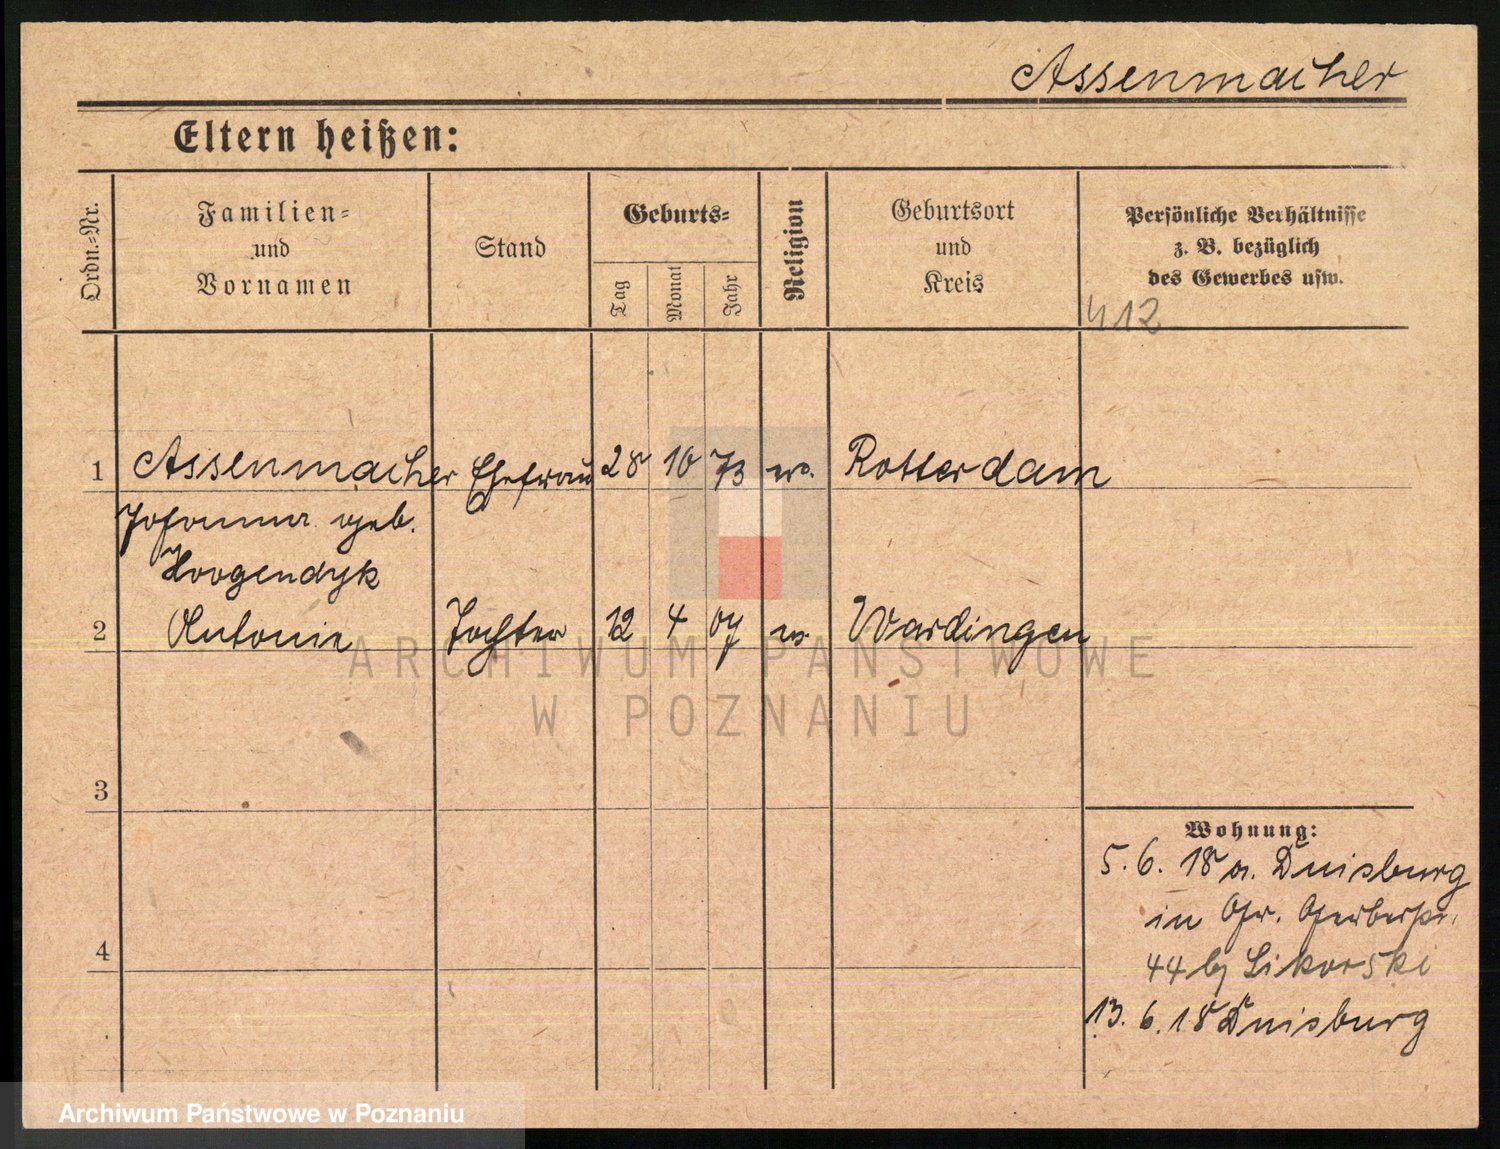 Assenmacher
Eltern heißen:
Ordn.=Nr.
Familien=
und
Vornamen
Stand
Geburts=
Tag
Monat
Jahr
Religion
Geburtsort
und
Kreis
Persönliche Verhältnisse
z. B. bezüglich
des Gewerbes usw.
412
1 Assenmacher Ehefrau 28 10 73 Rotterdam
Johanna geb.
Hoogendyk
2 Antonie Tochter 12 4 07 Wardingen
3
4
Wohnung:
5. 6. 18 a. Duisburg
in Gr. Gerberstr.
44 bj Sikorski
13. 6. 18 Duisburg
ARCHIWUM PAŃSTWOWE
W POZNANIU
Archiwum Państwowe w Poznaniu